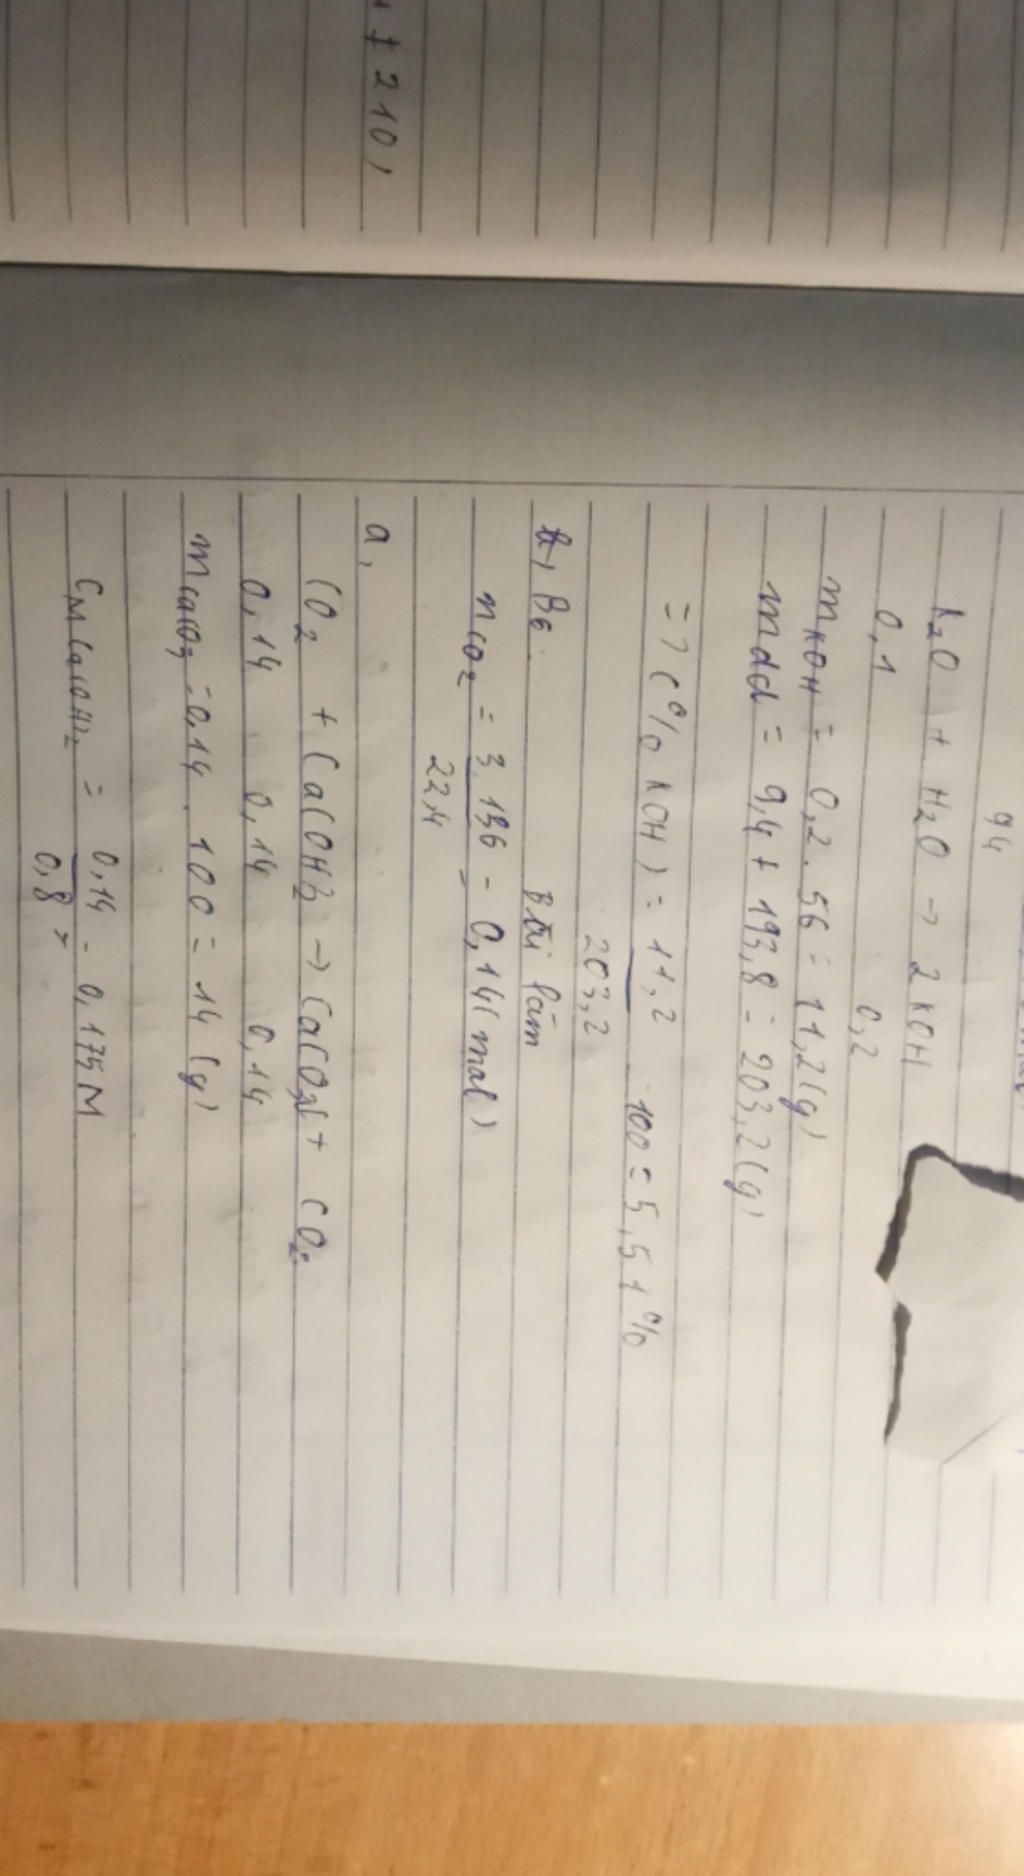 94
K2O + H2O → 2KOH
0,1 0,2
mKOH = 0,2 . 56 = 11,2 (g)
mdd = 9,4 + 193,8 = 203,2 (g)
=> C% KOH) = 11,2 100 = 5,51%
203,2
Bài làm
nCO2 = 3,136 = 0,14 (mol)
22,4
a,
CO2 + Ca(OH)2 → CaCO3↓ + CO2
0,14 0,14 0,14
mCaCO3 = 0,14 . 100 = 14 (g)
CM Ca(OH)2 = 0,14 = 0,175M
0,8
+ 210)